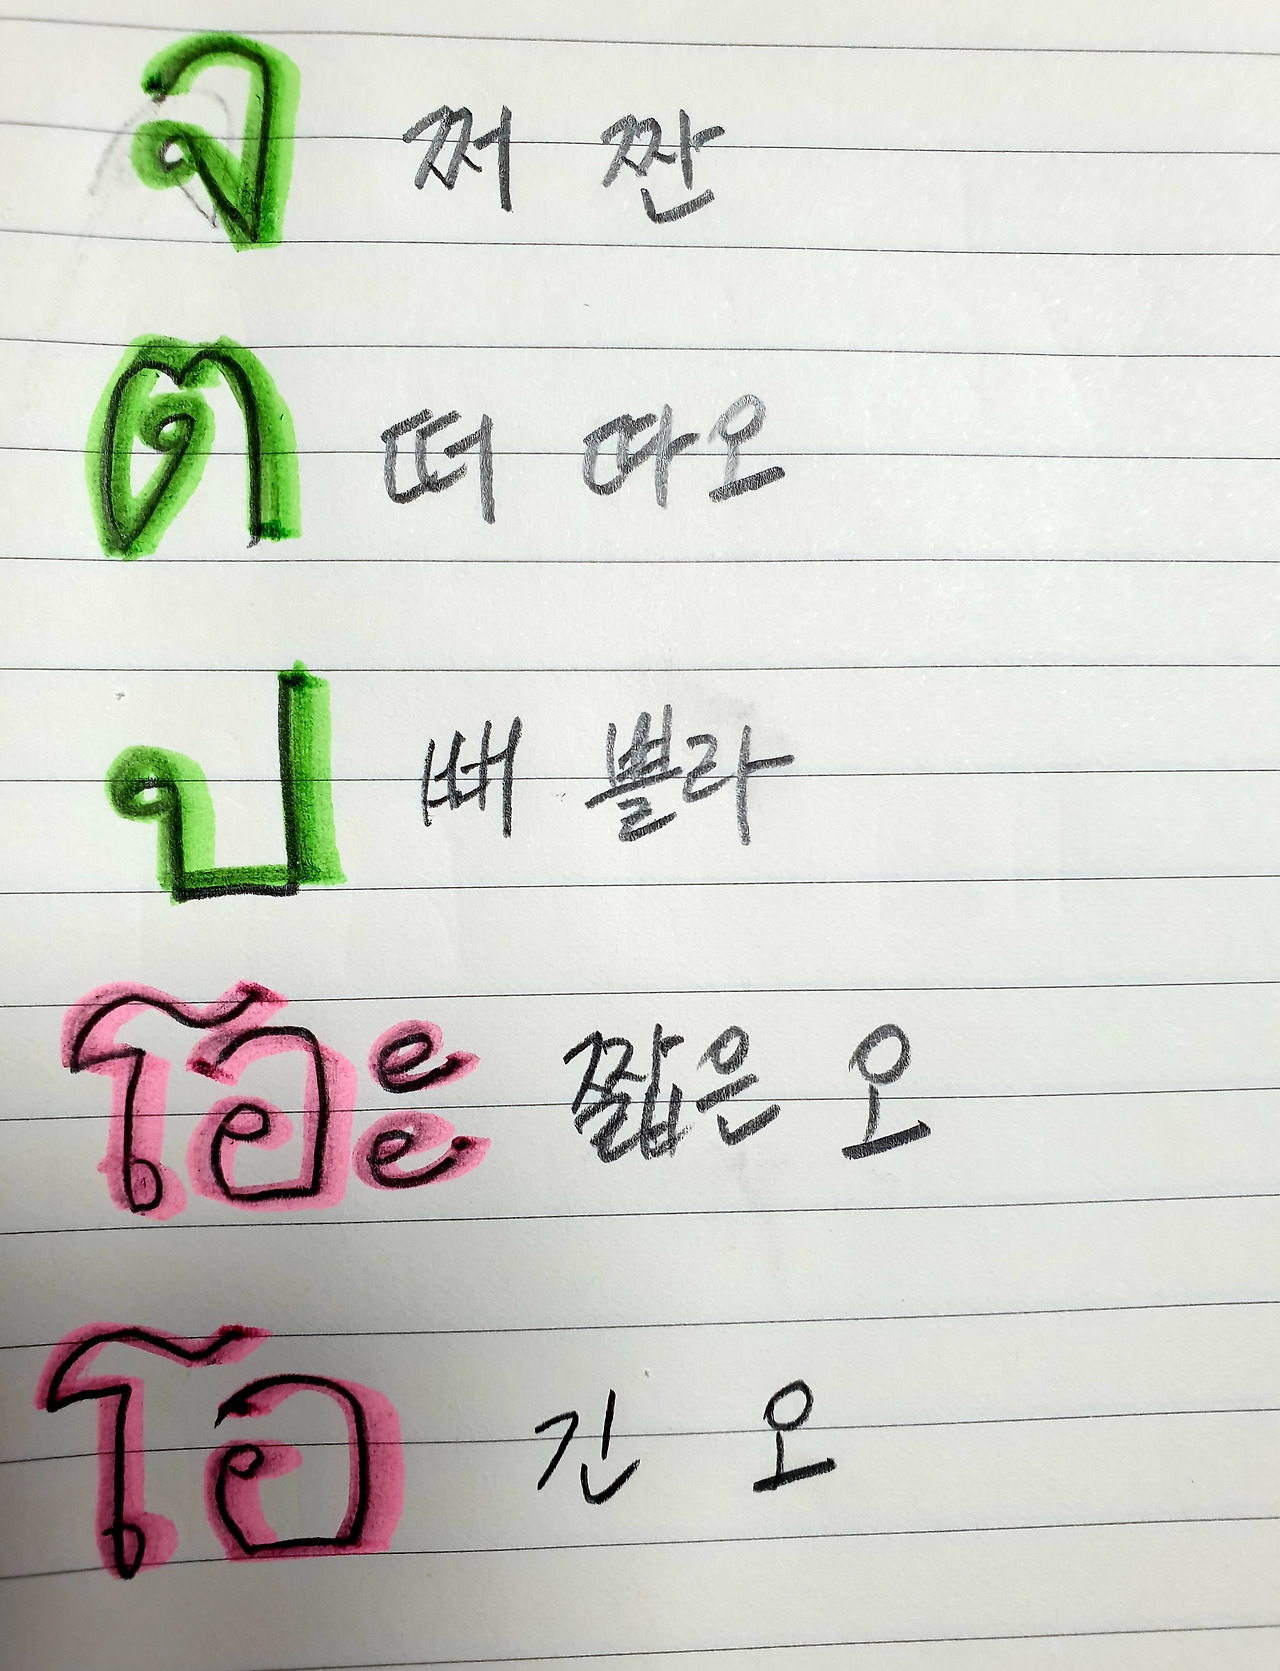 จ 쩌 짠
ต 떠 따오
ป 뻐 쁠라
โอะ 짧은 오
โอ 긴 오